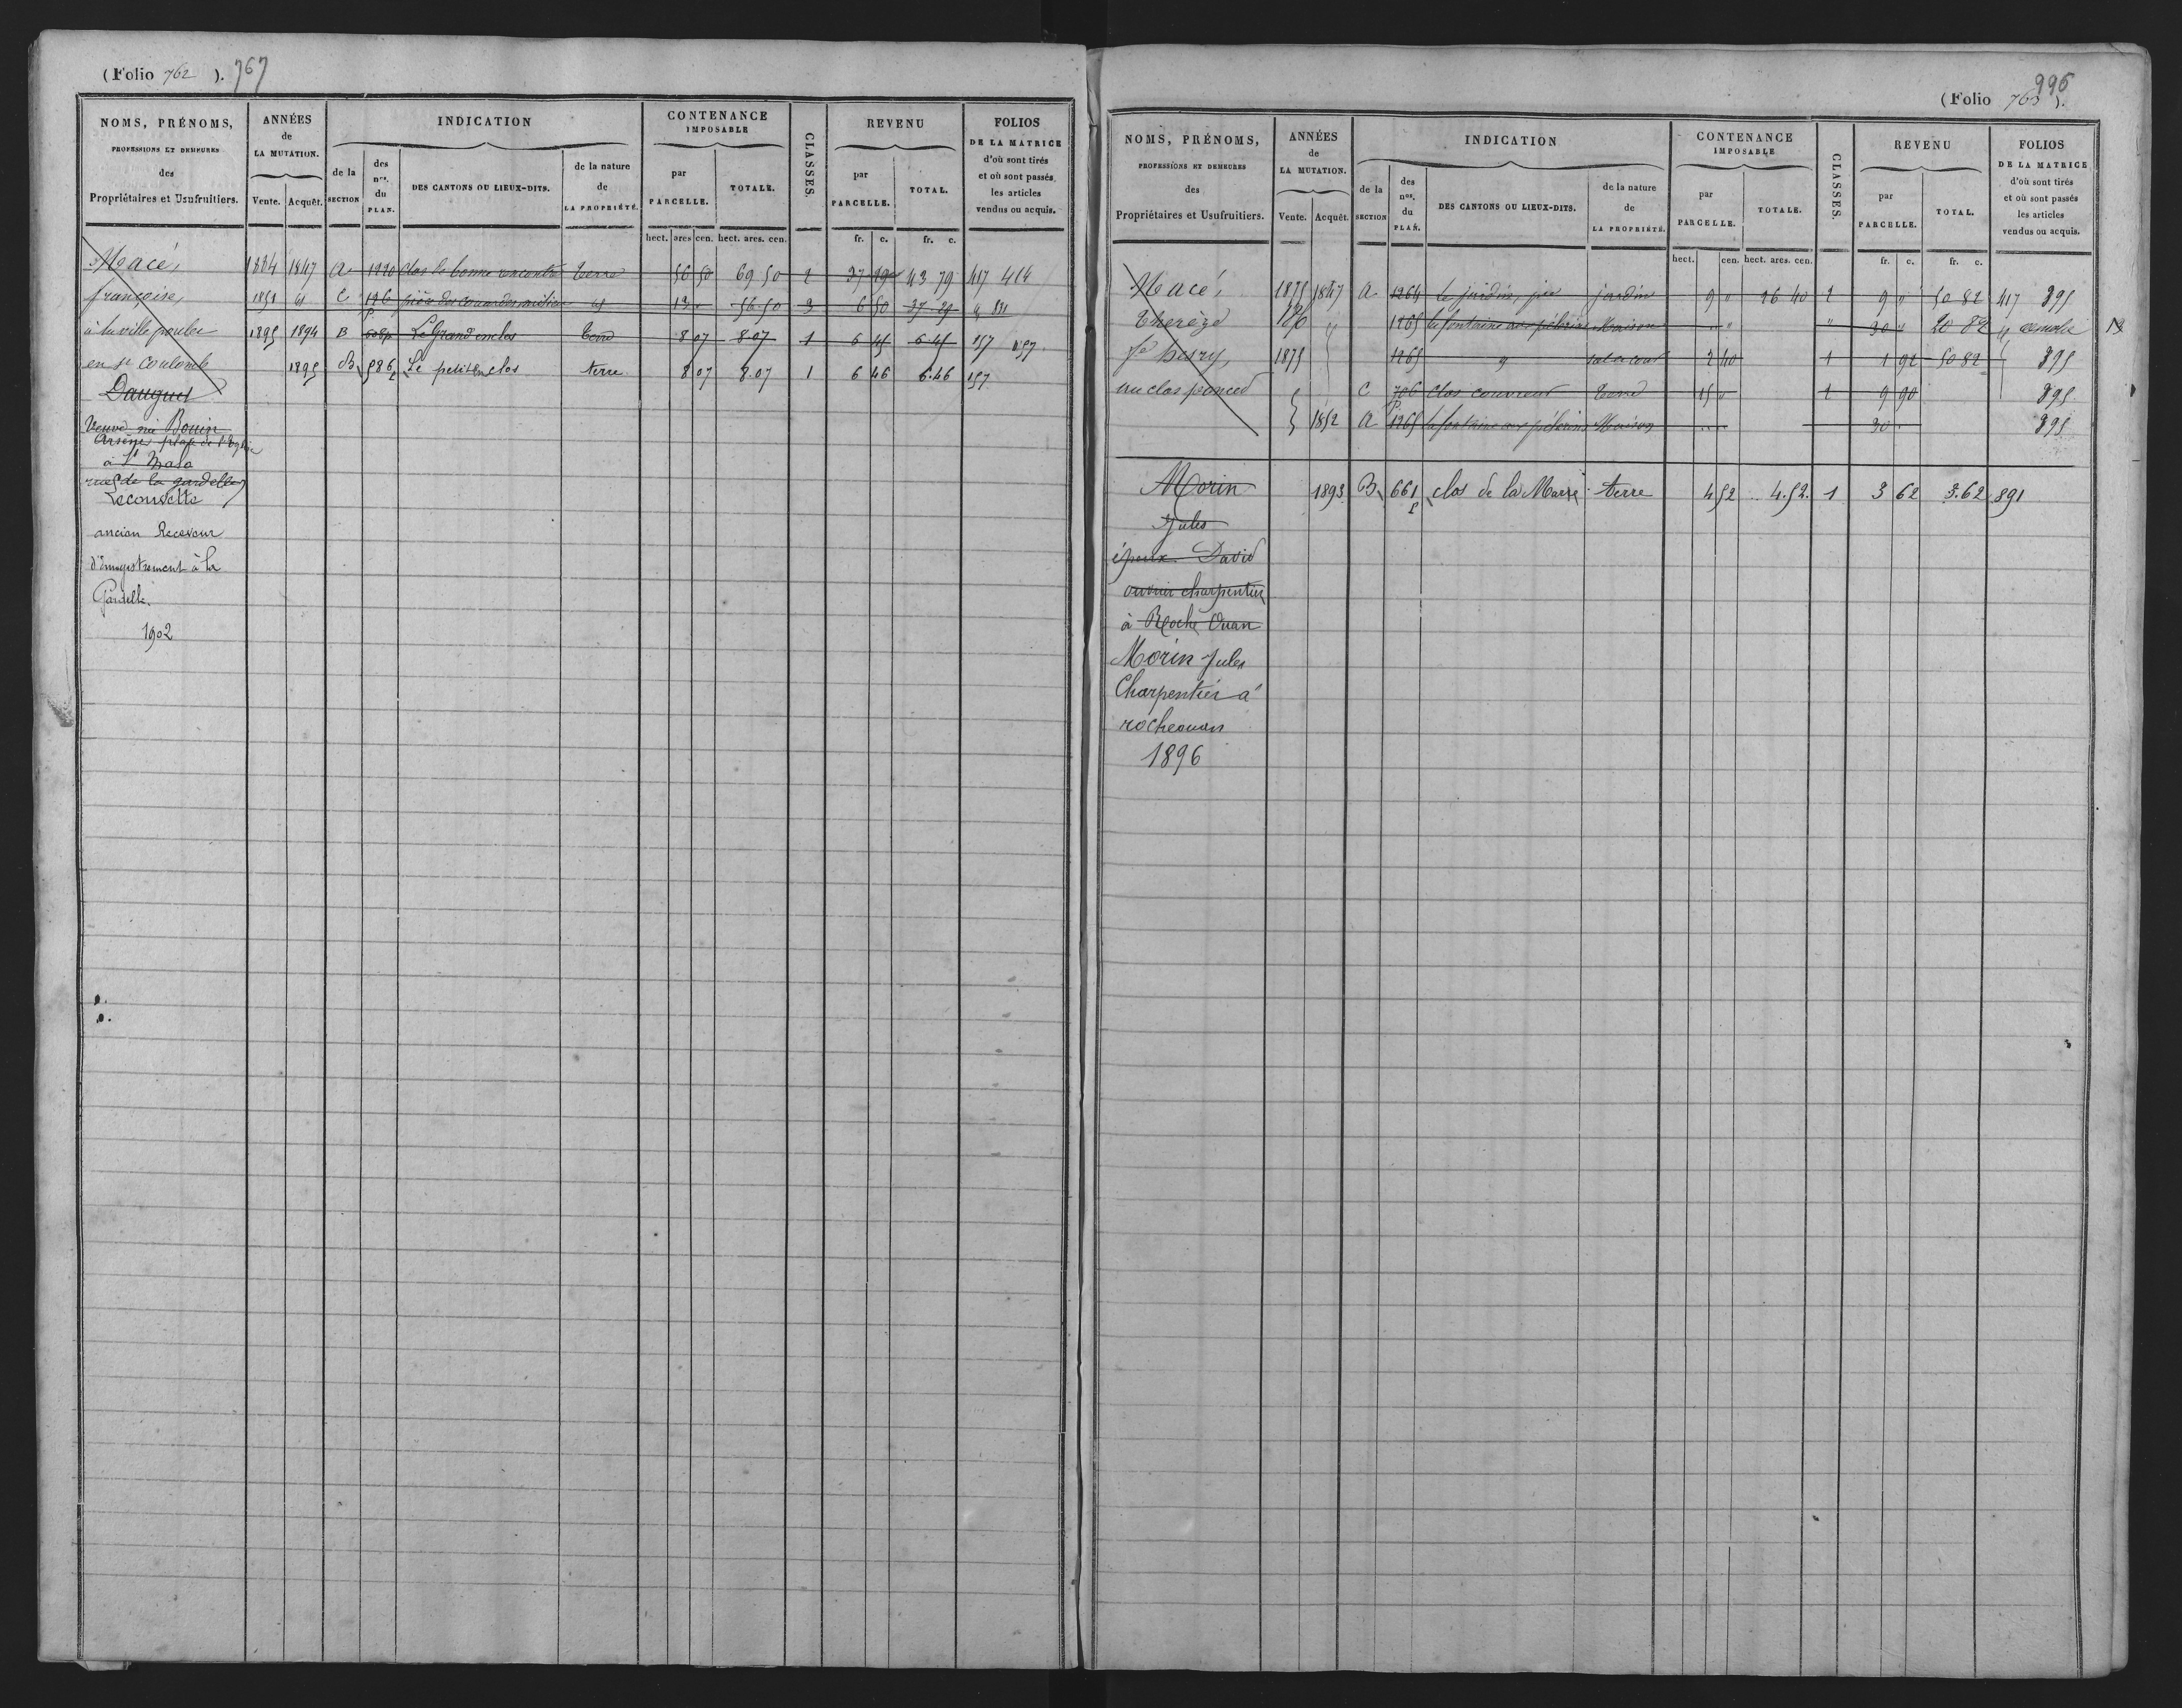 (Folio 762 ). 767
NOMS, PRÉNOMS,
PROFESSIONS ET DEMEURES
des
Propriétaires et Usufruitiers.
ANNÉES
de
LA MUTATION.
Vente. Acquêt.
INDICATION
de la
SECTION
des
nos.
du
PLAN.
DES CANTONS OU LIEUX-DITS.
de la nature
de
LA PROPRIÉTÉ.
CONTENANCE
IMPOSABLE
par
PARCELLE.
TOTALE.
CLASSES.
REVENU
par
PARCELLE.
TOTAL.
FOLIOS
DE LA MATRICE
d'où sont tirés
et où sont passés
les articles
vendus ou acquis.
hect. ares cen. hect. ares. cen. fr. c. fr. c.
Macé, 1864 1847 A 1220 clos de bonne rencontre terre 56 50 69 50 2 37 29 43 79 417 414
françoise, 1851 C 126 13 56.50 3 6 50 37 29
à la ville poulet 1895 1894 B Le Grand enclos terre 8 07 8.07 1 6 45 6.45 157 157
en st coulomb 1895 B 586 Le petit enclos terre 8 07 8.07 1 6 46 6.46 157
Dauguet
Veuve née Bouin
Arsène place de l'église
à St Malo
rue de la gardelle
Lecouvette
ancien Receveur
d'enregistrement à la
Gardelle.
1902
996
(Folio 763 ).
NOMS, PRÉNOMS,
PROFESSIONS ET DEMEURES
des
Propriétaires et Usufruitiers.
ANNÉES
de
LA MUTATION.
Vente. Acquêt.
INDICATION
de la
SECTION
des
nos.
du
PLAN.
DES CANTONS OU LIEUX-DITS.
de la nature
de
LA PROPRIÉTÉ.
CONTENANCE
IMPOSABLE
par
PARCELLE.
TOTALE.
CLASSES.
REVENU
par
PARCELLE.
TOTAL.
FOLIOS
DE LA MATRICE
d'où sont tirés
et où sont passés
les articles
vendus ou acquis.
hect. cen. hect. ares. cen. fr. c. fr. c.
Macé, 1875 1847 A 1264 le jardin, jardin 9 " 26 40 1 9 " 50 82 417 395
Therèze " 1265 la fontaine aux pélerins Maison " " 30 " 20 82 "
fe hesry, 1875 1265 " sol et cour 2 40 1 1 92 50 82 395
au clos poncel C 706 clos couvreur terre 15 " 1 9 90 395
1852 A 1265 la fontaine aux pélerins Maison 30 395
Morin 1893 B 661 clos de la Marre terre 4 52 4.52. 1 3 62 3.62 891
Jules
époux David
ouvrier charpentier
à Roche Ouan
Morin Jules
Charpentier à
rocheouan
1896